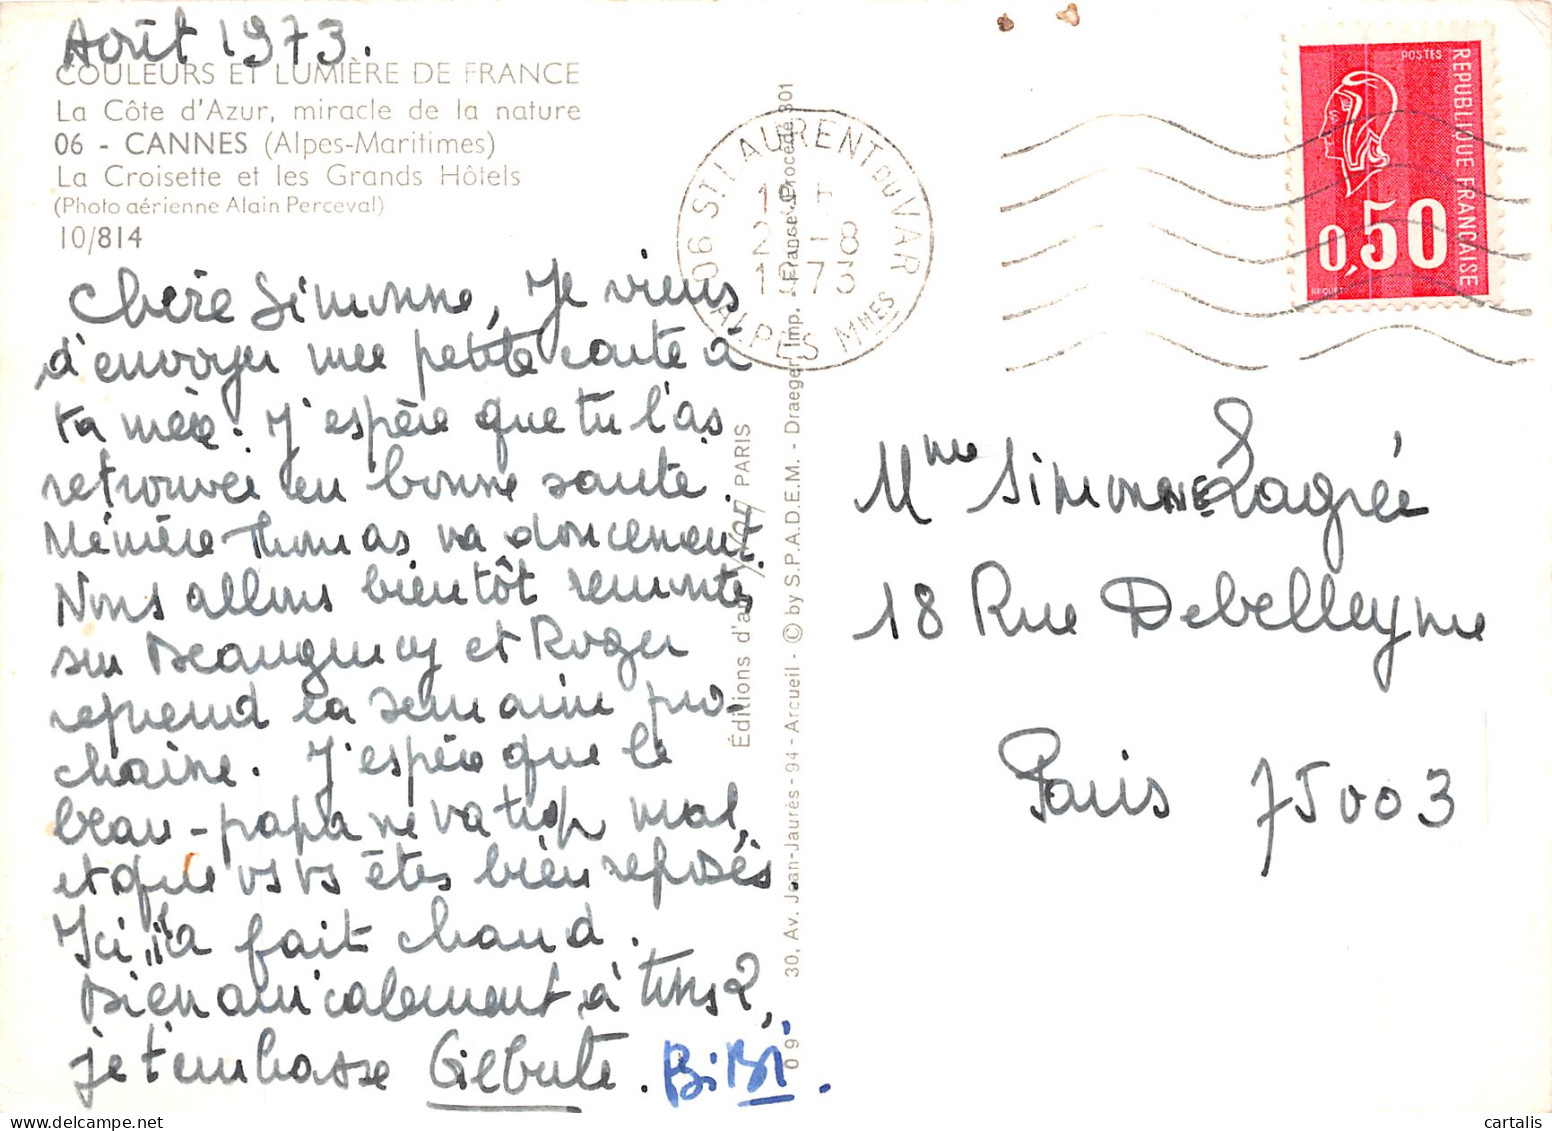 Août 1973.
COULEURS ET LUMIÈRE DE FRANCE
La Côte d'Azur, miracle de la nature
06 - CANNES (Alpes-Maritimes)
La Croisette et les Grands Hôtels
(Photo aérienne Alain Perceval)
10/814
Chère Simonne, Je viens
d'envoyer une petite carte à
ta mère. J'espère que tu l'as
retrouvée en bonne santé.
Mémère Thomas va doucement.
Nous allons bientôt remonter
sur Beaugency et Roger
reprend la semaine pro-
chaine. J'espère que le
beau-papa ne va trop mal,
et que vs vs êtes bien reposés.
Ici, il a fait chaud.
Bien amicalement à tous 2,
je t'embrasse BiBi.
Éditions d'art YVON PARIS
30, Av. Jean-Jaurès - 94 - Arcueil - © by S.P.A.D.E.M. - Draeger, Imp. - France - Procédé 301
09
06 ST LAURENT DU VAR
2 - 8
1973
ALPES MMES
POSTES
REPUBLIQUE FRANCAISE
0,50
BEQUET
Mme Simonne Lagrée
18 Rue Debelleyme
Paris 75003
cartalis